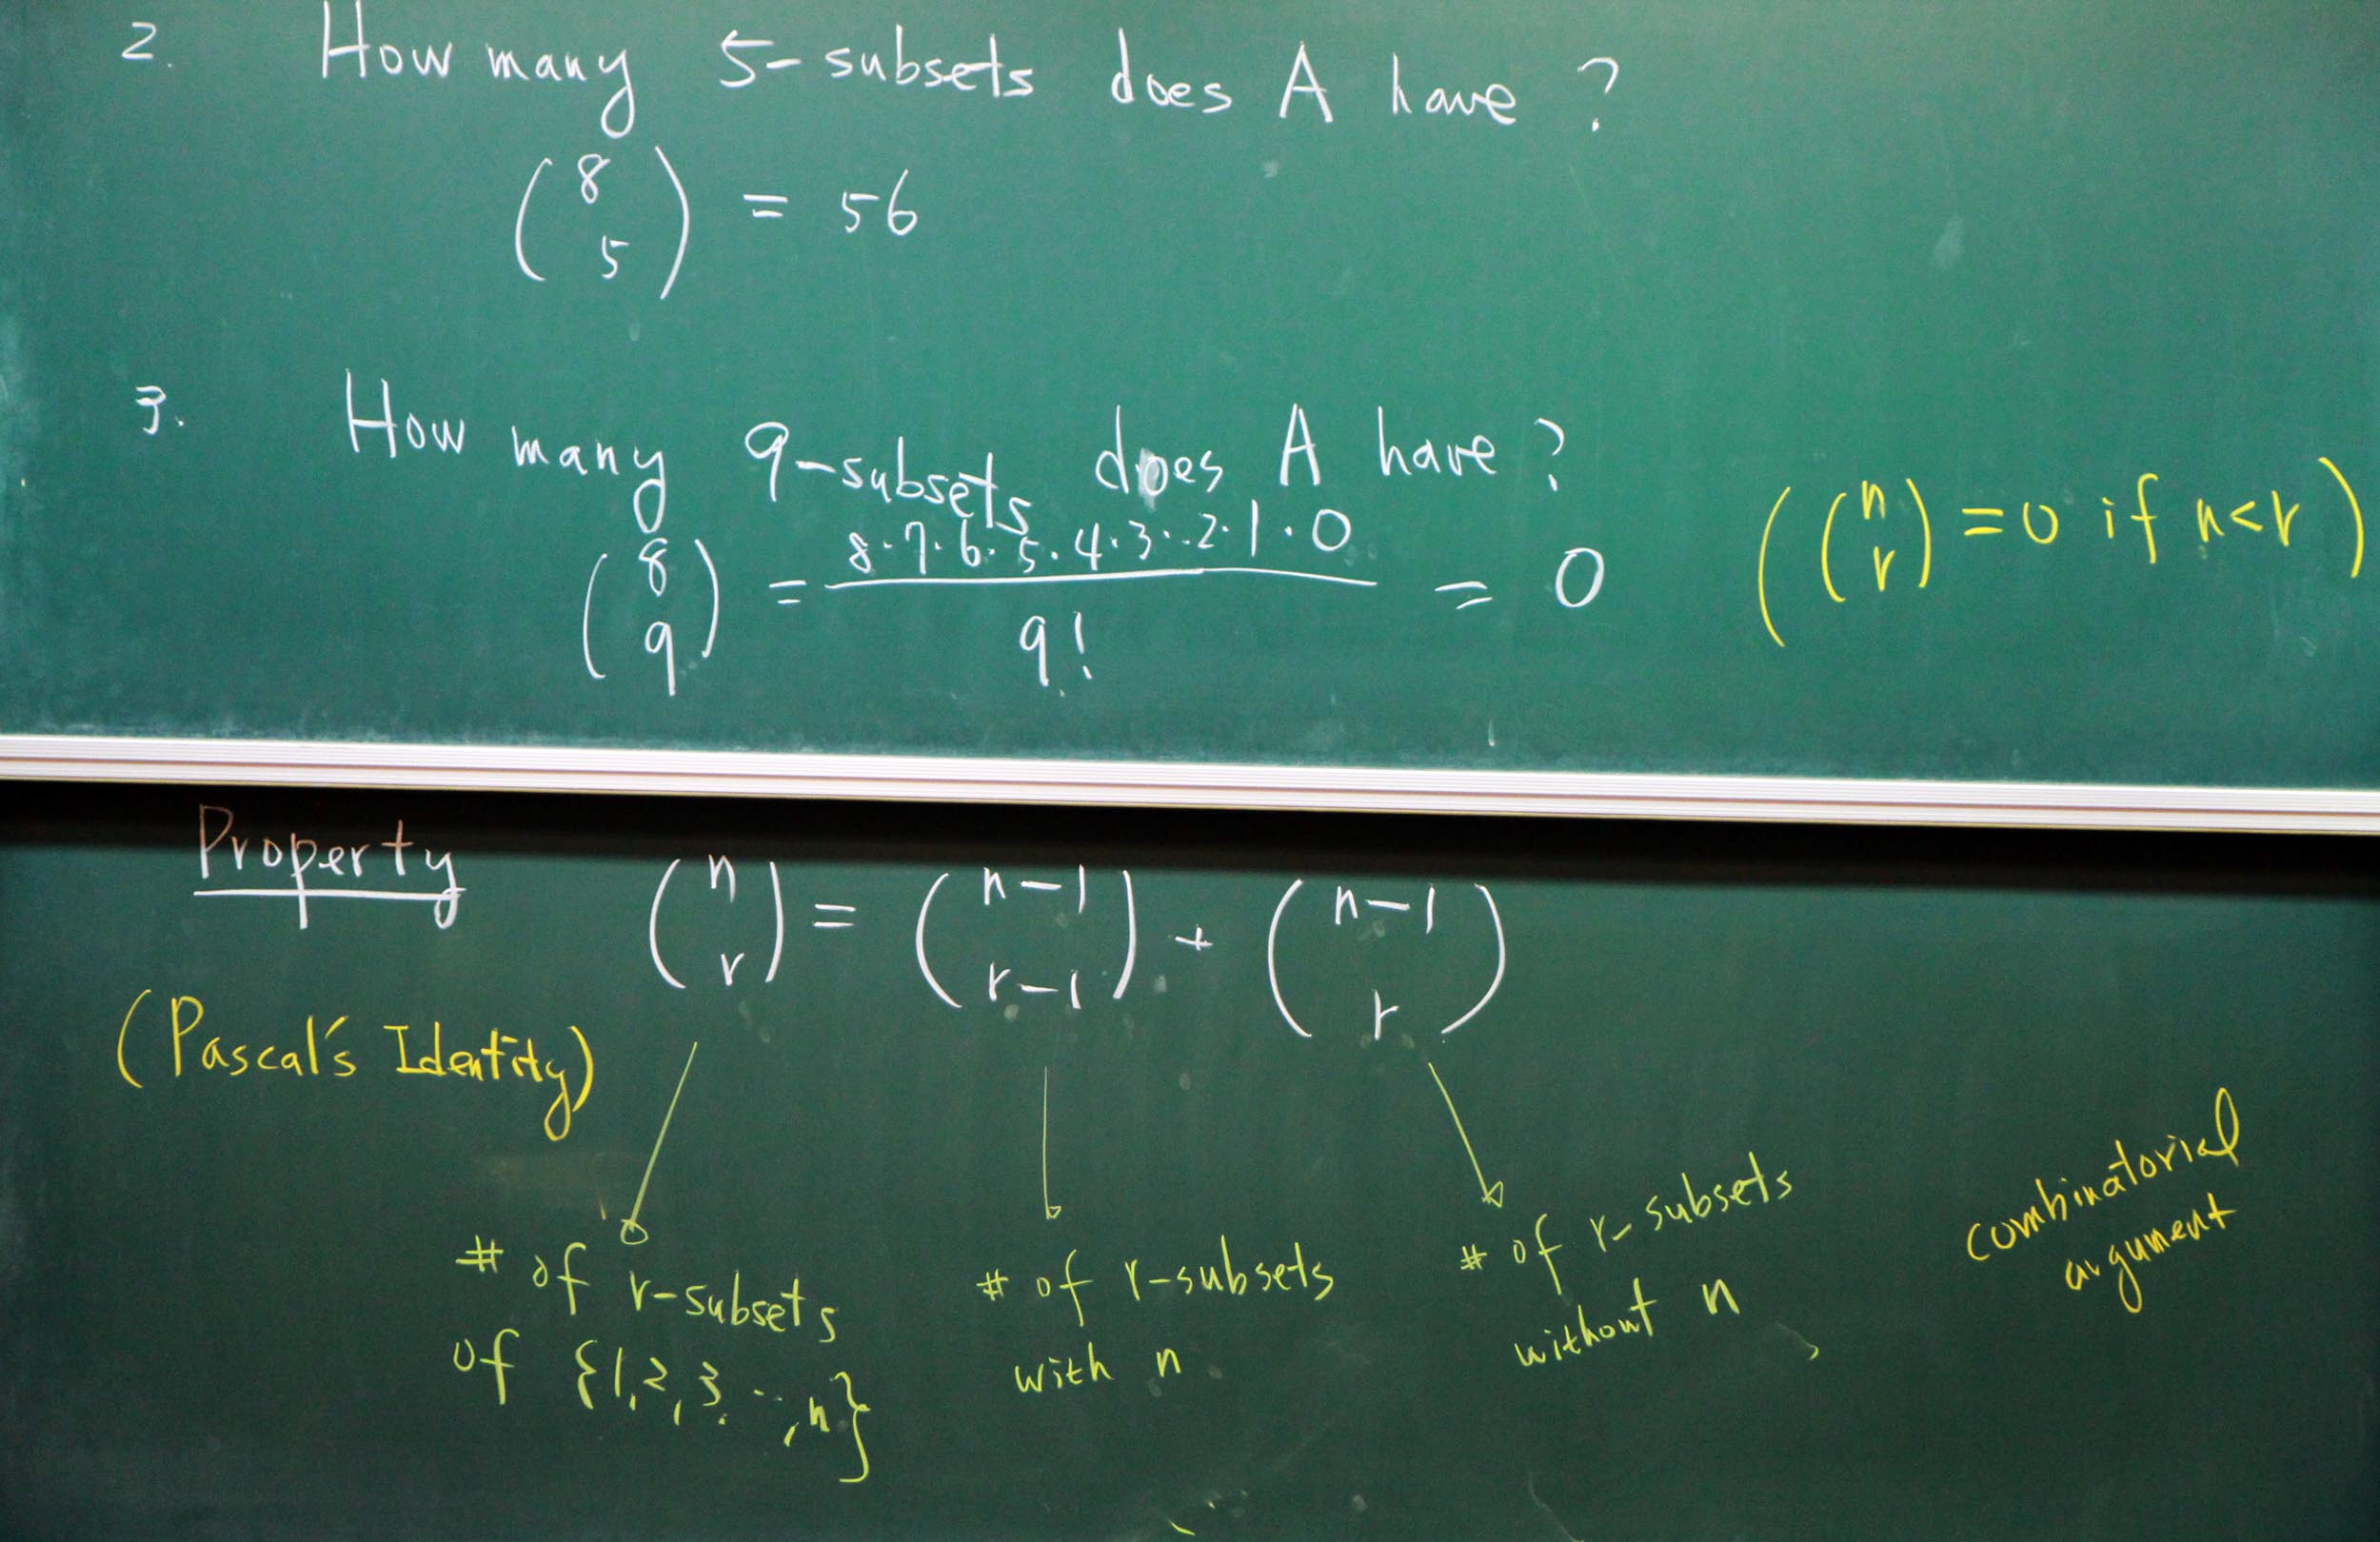 2. How many 5-subsets does A have?
(8 5) = 56
3. How many 9-subsets does A have?
(8 9) = 8·7·6·5·4·3·2·1·0 / 9! = 0 ((n r) = 0 if n<r)
Property (n r) = (n-1 r-1) + (n-1 r)
(Pascal's Identity)
# of r-subsets
of {1,2,3,⋯,n}
# of r-subsets
with n
# of r-subsets
without n
combinatorial
argument